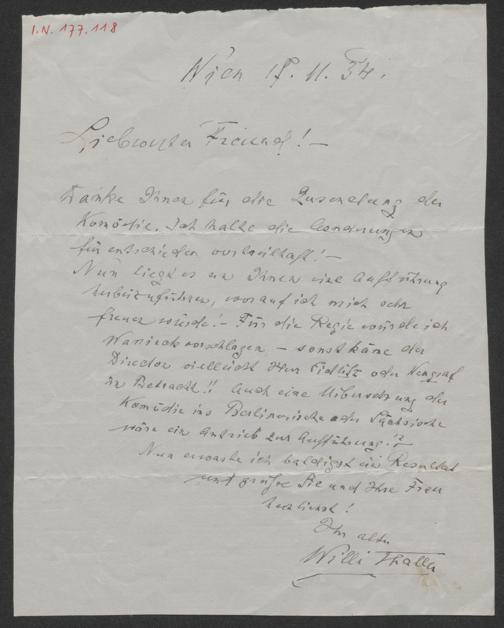 I.N. 177.118
Wien 11. 34.
Liebwerter Freund! –
Danke Ihnen für die Zusendung der
Komödie. Ich halte die Änderungen
für entschieden vorteilhaft! –
Nun liegt es an Ihnen eine Aufführung
herbeizuführen, worauf ich mich sehr
freuen würde! – Für die Regie würde ich
vorschlagen – sonst käme der
Director vielleicht Herr oder
in Betracht!! Auch eine Übersetzung der
Komödie ins Berlinerische oder Sächsische
wäre ein Antrieb zur Aufführung!?
Nun erwarte ich baldigst ein Resultat
und grüße Sie und Ihre Frau
herzlichst!
Ihr alter
Willi Thaller